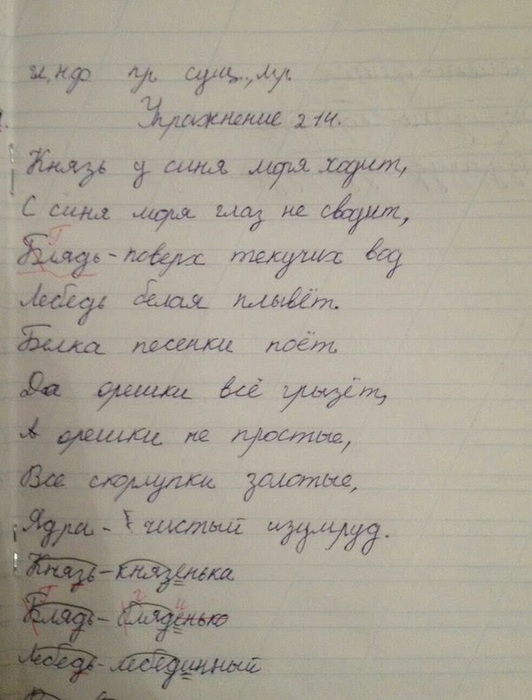 Упражнение 214.
Князь у синя моря ходит,
С синя моря глаз не сводит,
Г
Блядь - поверх текучих вод
Лебедь белая плывёт.
Белка песенки поёт
Да орешки всё грызёт,
А орешки не простые,
Все скорлупки золотые,
Ядра - чистый изумруд.
Князь - князенька
Г г и
Блядь - бляденько
Лебедь - лебединный